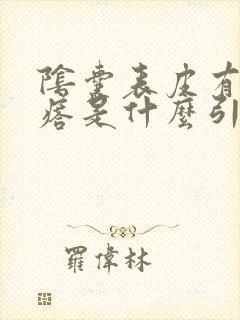 陰囊表皮有
瘩是什麼引
羅偉林